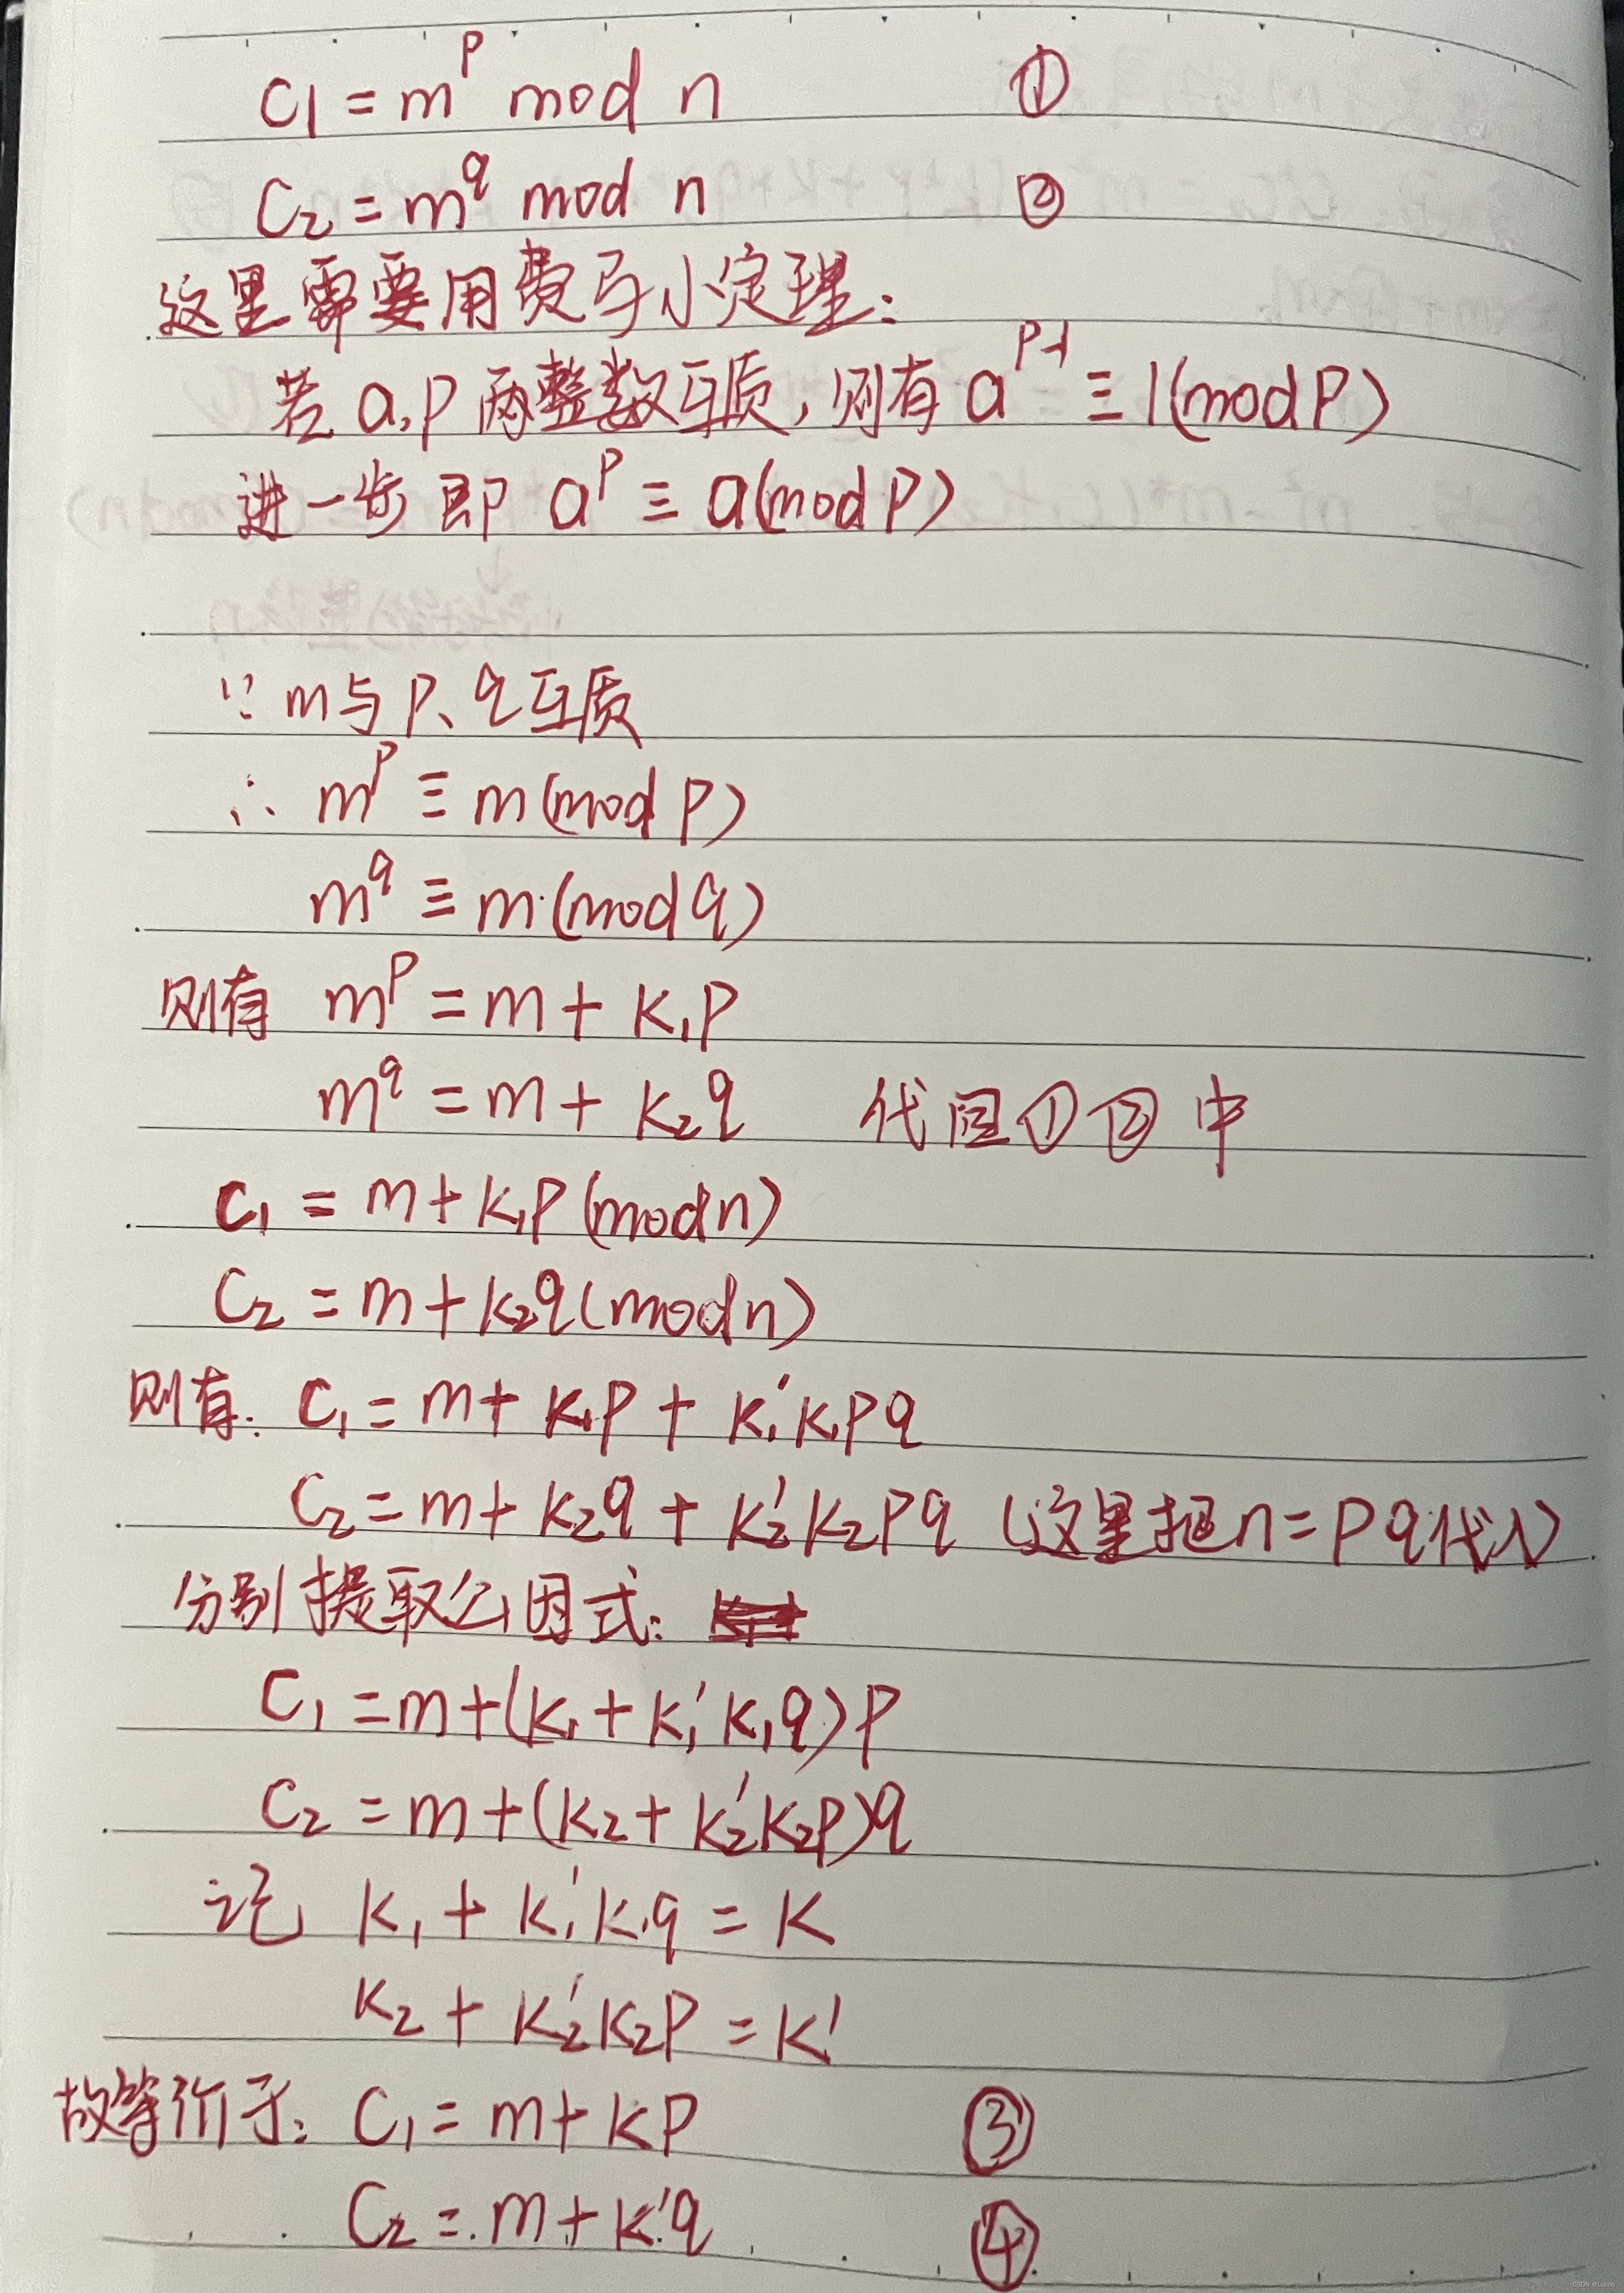 C1 = m^p mod n ①
C2 = m^q mod n ②
这里需要用费马小定理:
若 a,p 两整数互质,则有 a^(p-1) ≡ 1(mod p)
进一步即 a^p ≡ a(mod p)
∵ m与p、q互质
∴ m^p ≡ m(mod p)
m^q ≡ m(mod q)
则有 m^p = m + k₁p
m^q = m + k₂q 代回①②中
C₁ = m + k₁p (mod n)
C₂ = m + k₂q (mod n)
则有: C₁ = m + k₁p + k₁'k₁pq
C₂ = m + k₂q + k₂'k₂pq (这里把n=pq代入)
分别提取公因式:
C₁ = m + (k₁ + k₁'k₁q)p
C₂ = m + (k₂ + k₂'k₂p)q
记 k₁ + k₁'k₁q = k
k₂ + k₂'k₂p = k'
故等价于: C₁ = m + kp ③
C₂ = m + k'q ④